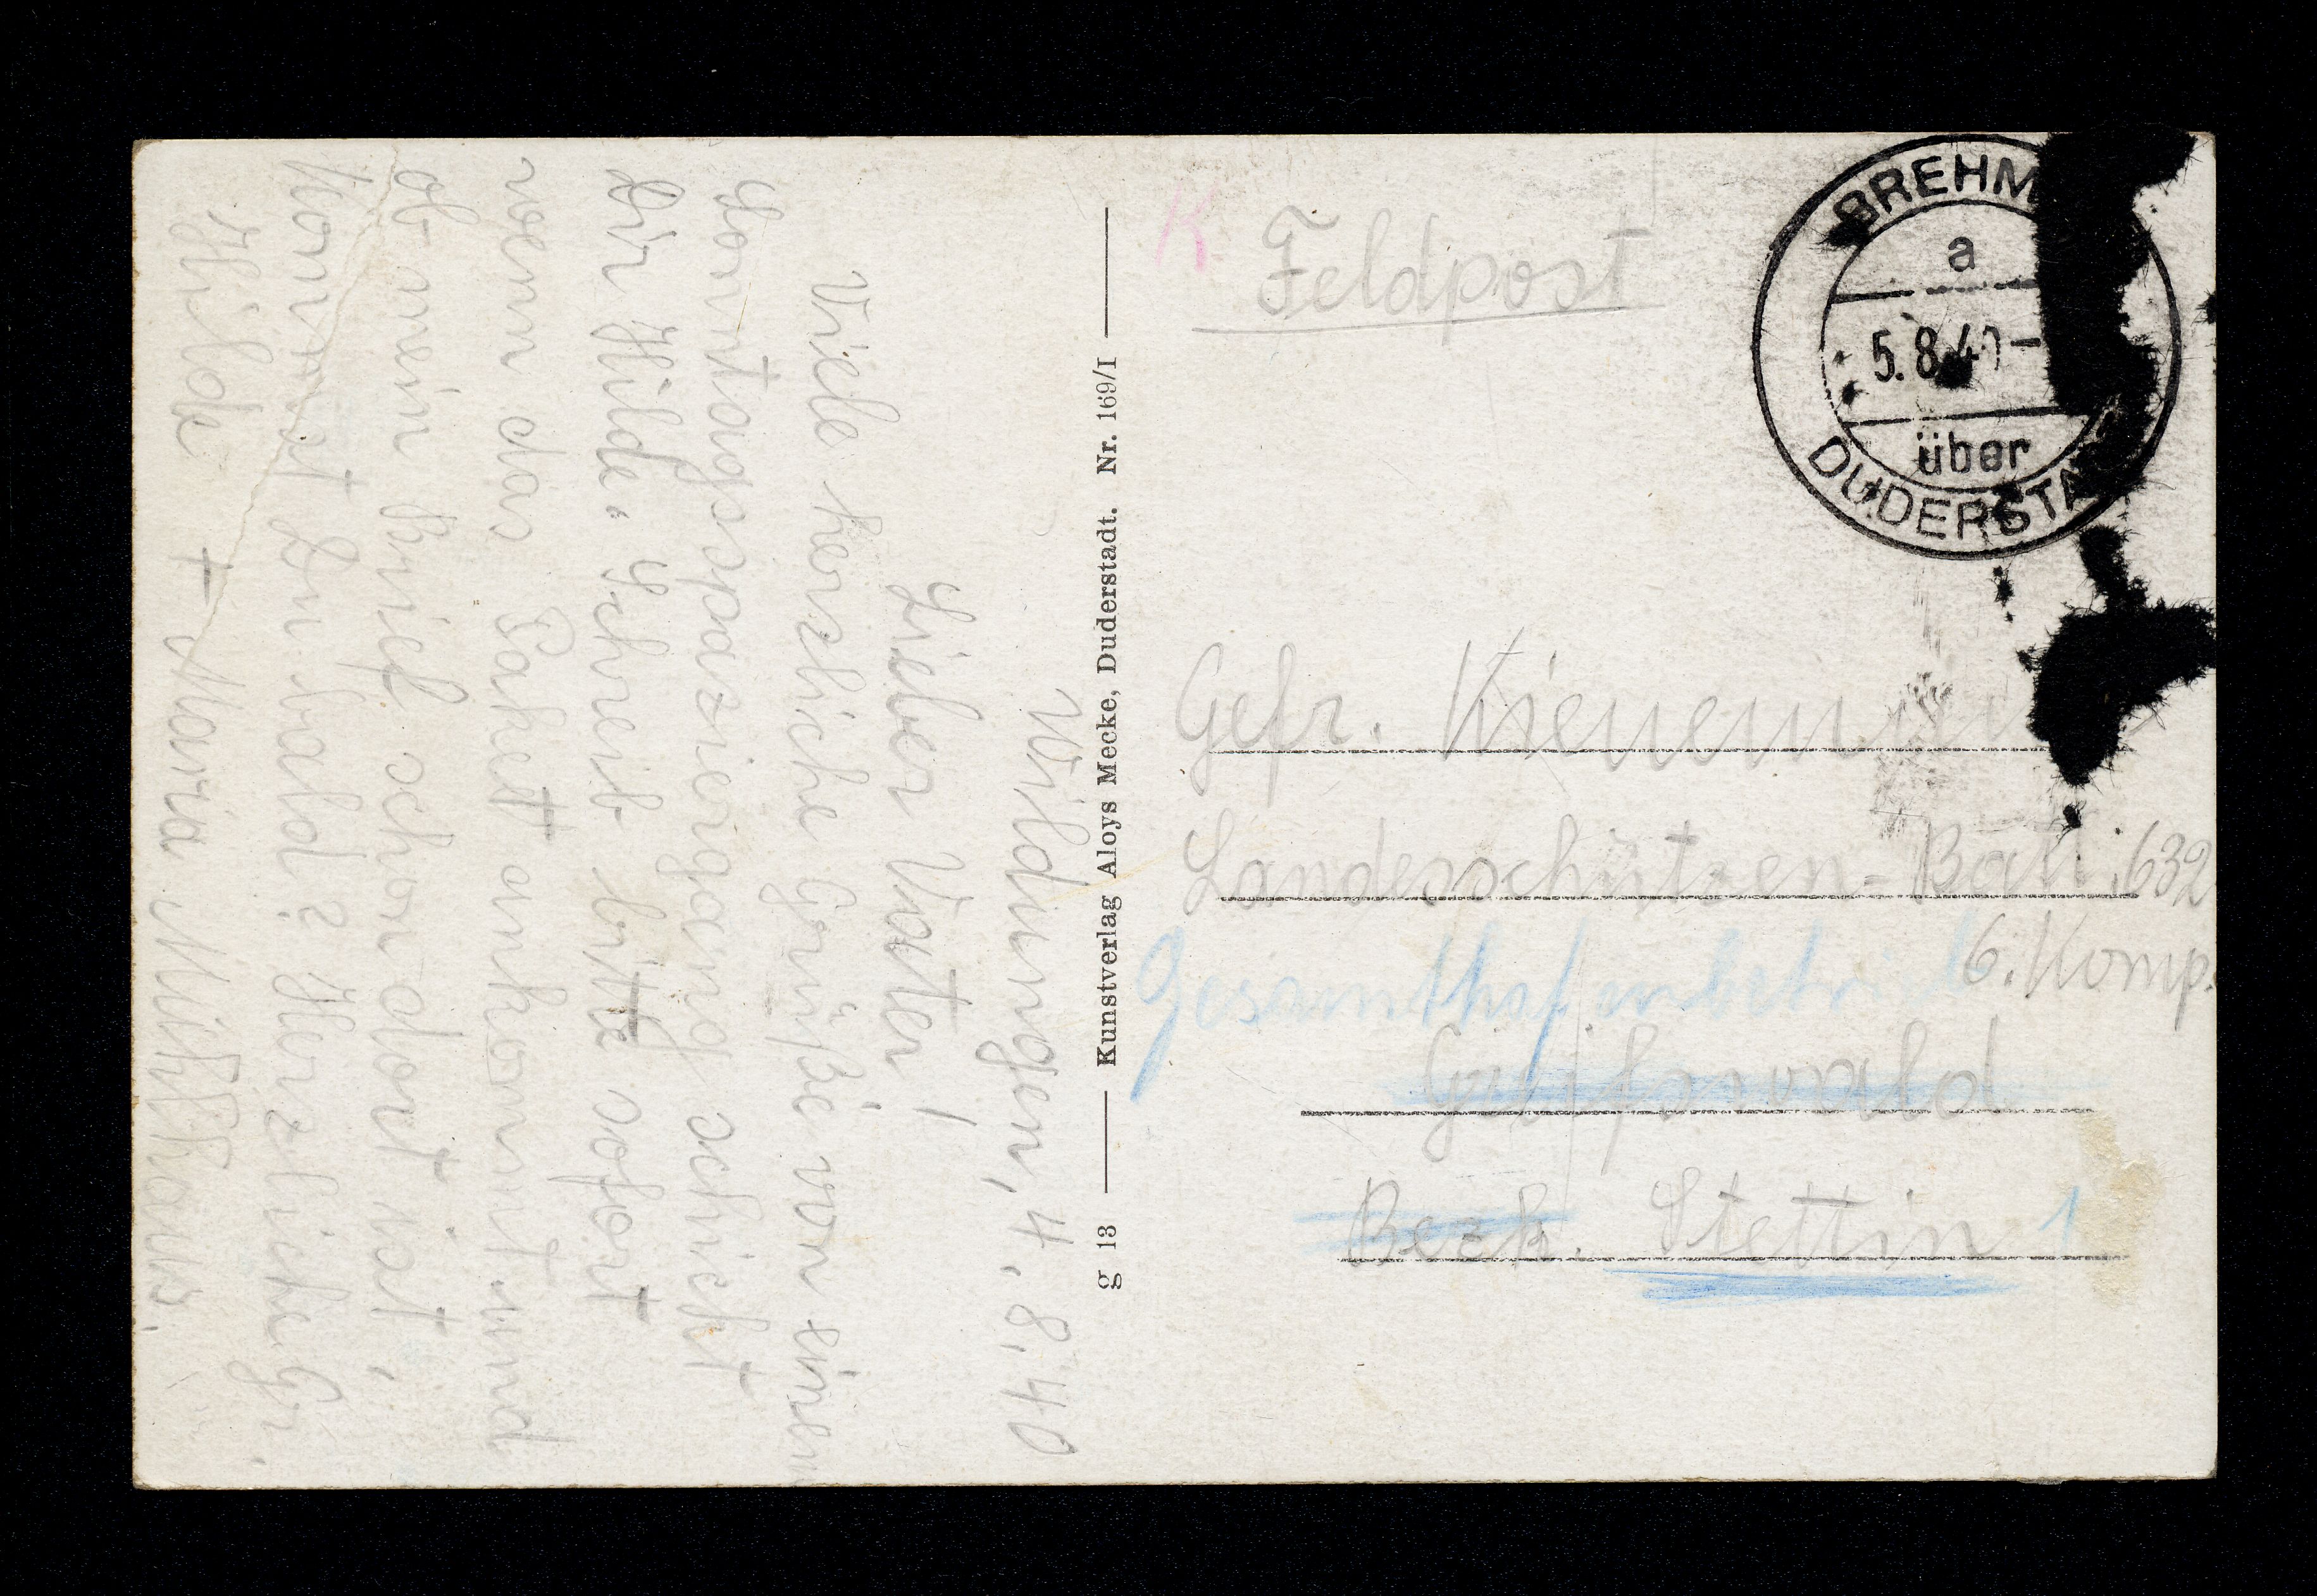 Wildungen, 4. 8. 40
Lieber Vater!
Viele herzliche Grüße von einem
Sonntagsspaziergang schickt
Dir Hilde. Schreib bitte sofort
wenn das Paket ankommt und
ob mein Brief schon dort ist,
Kommst Du bald? Herzliche Gr.
Hilde + Maria
g 13 Kunstverlag Aloys Mecke, Duderstadt. Nr. 169/I
K
Feldpost
BREHM
a
5.8.40
über
DUDERSTA
Gefr.
Landesschützen-Batl. 632
6. Komp.
Greifswald
Bezk. Stettin 1